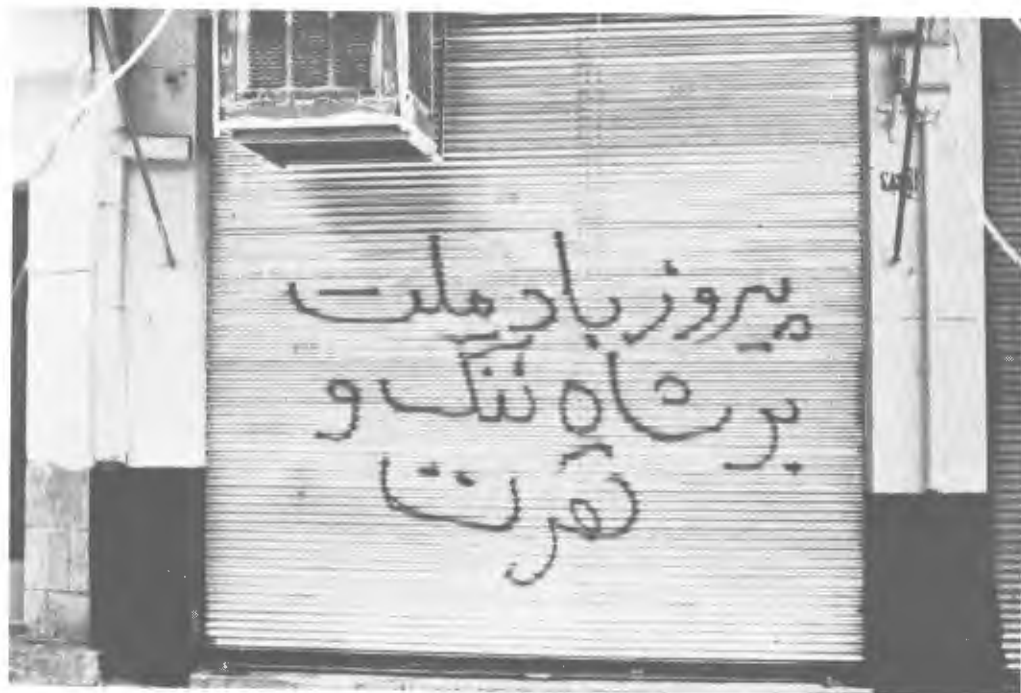 پیروز باد ملت
بر شاه ننگ و
نفرت